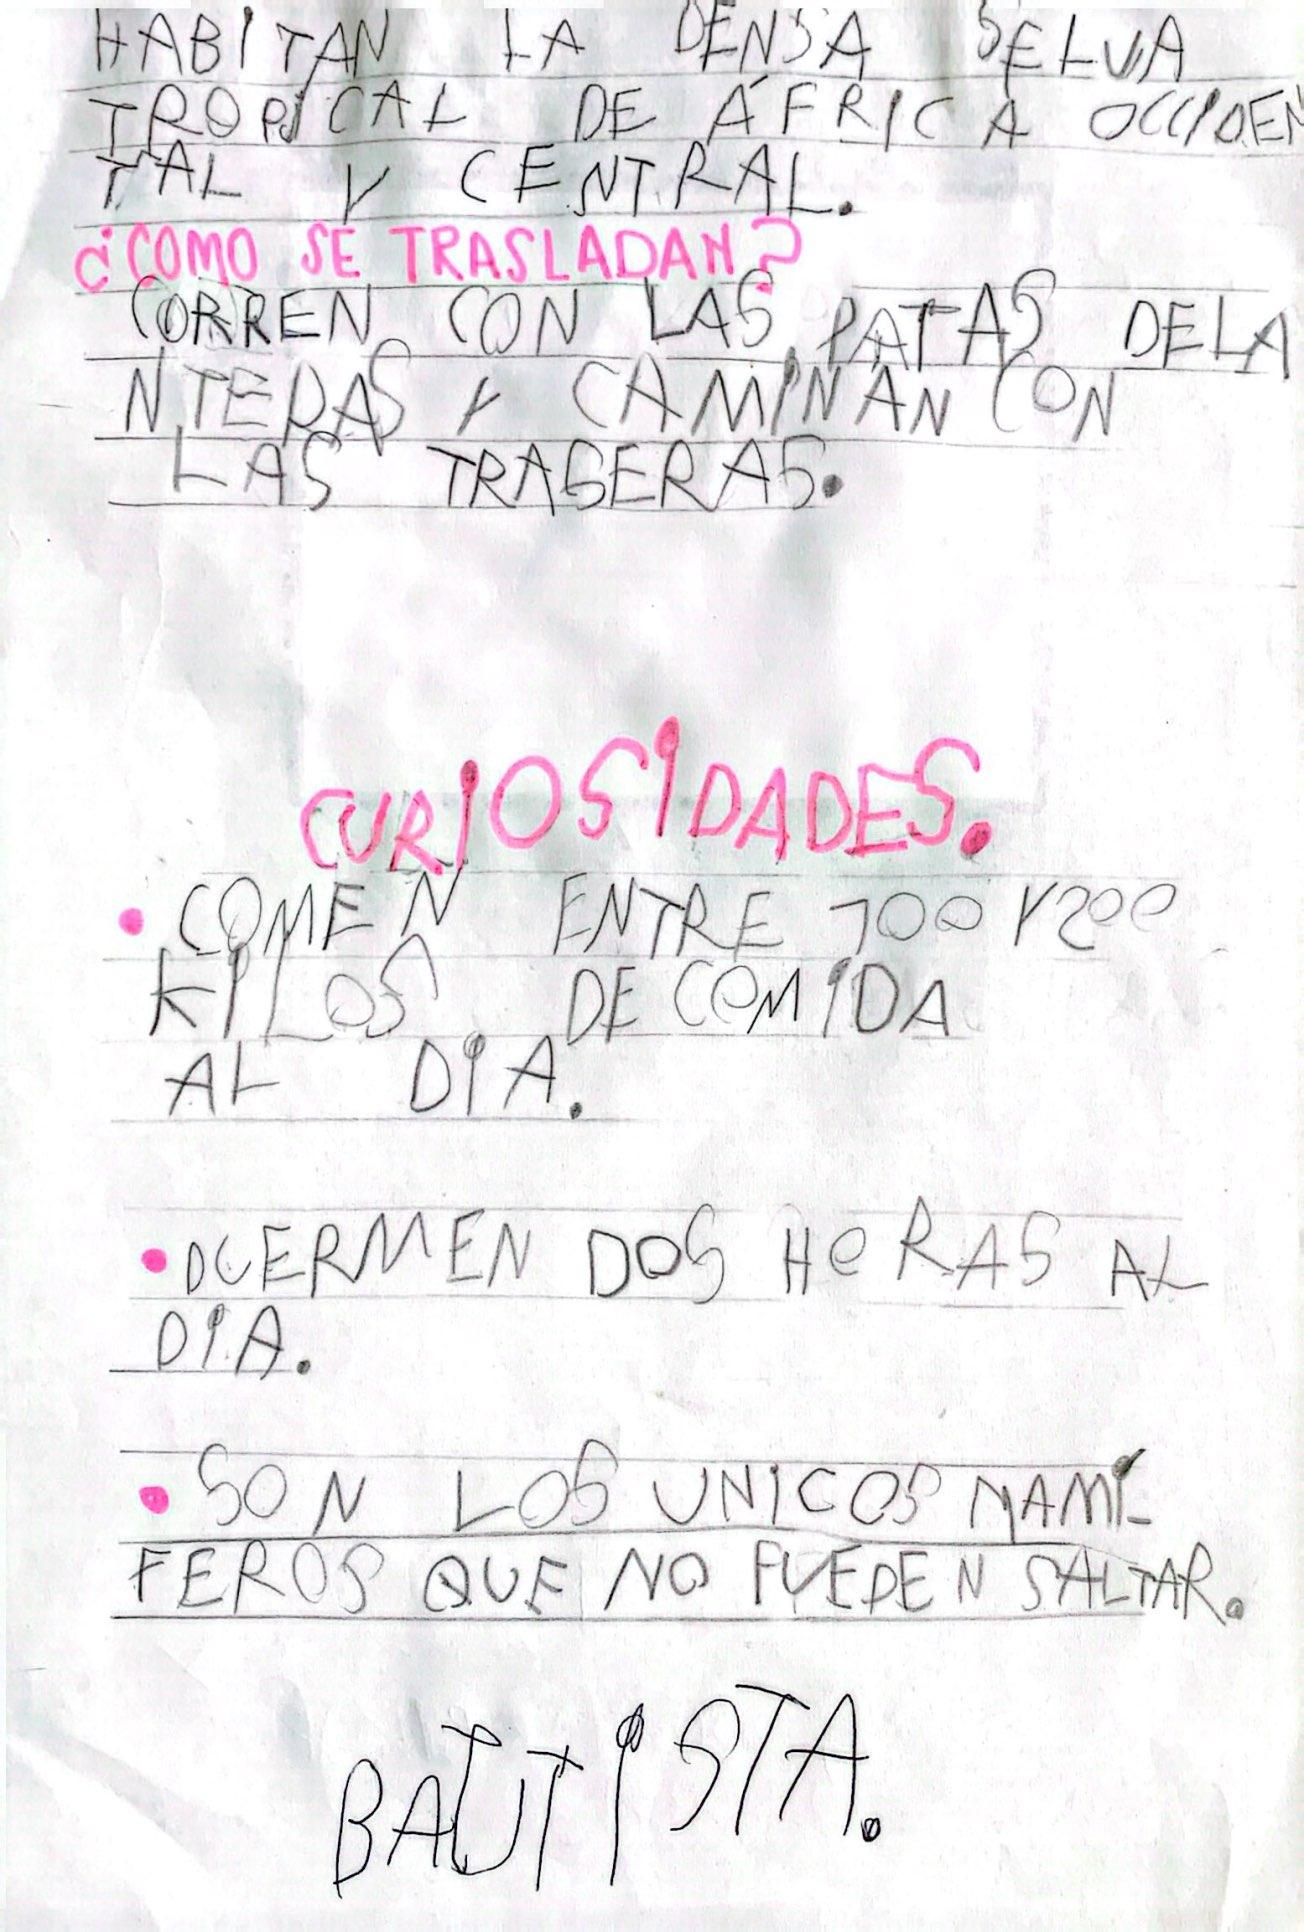 HABITAN LA DENSA SELVA
TROPICAL DE ÁFRICA OCCIDEN
TAL Y CENTRAL.
¿COMO SE TRASLADAN?
CORREN CON LAS PATAS DELA
NTERAS Y CAMINAN CON
LAS TRASERAS.
CURIOSIDADES.
• COMEN ENTRE 100 Y 200
KILOS DE COMIDA
AL DIA.
• DUERMEN DOS HORAS AL
DIA.
• SON LOS UNICOS MAMÍ-
FEROS QUE NO PUEDEN SALTAR.
BAUTISTA.